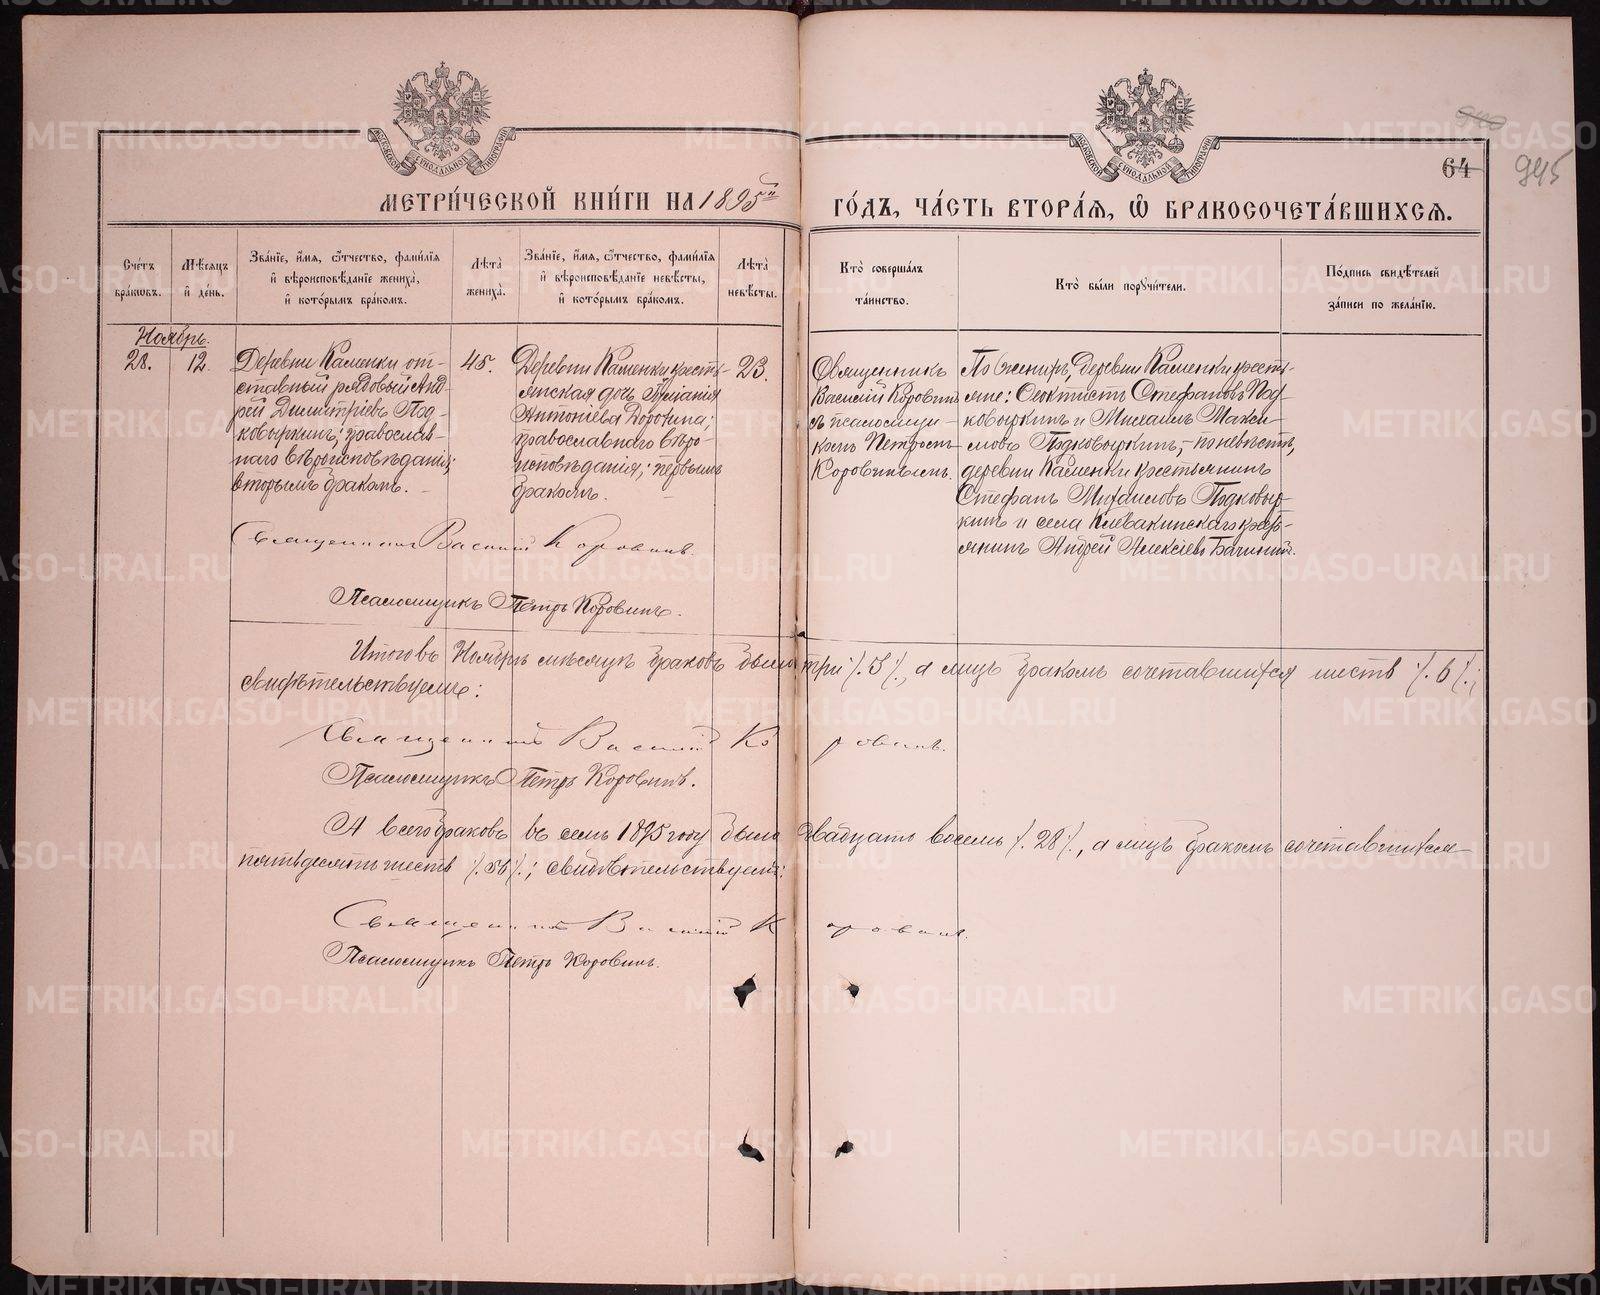 940
64
945
МОСКОВСКОЙ СѴНОДАЛЬНОЙ ТИПОГРАФІИ
МОСКОВСКОЙ СѴНОДАЛЬНОЙ ТИПОГРАФІИ
МЕТРИ́ЧЕСКОЙ КНИ́ГИ НА 1895й ГО́ДЪ, ЧА́СТЬ ВТОРА́Я, Ѽ БРАКОСОЧЕТА́ВШИХСЯ.
Сче́тъ бра́ковъ.
Мѣ́сяцъ и҆ де́нь.
Зва́нїе, и҆́мя, ѻ҆́тчество, фами́лїя и҆ вѣроисповѣ́данїе жениха̀, и҆ кото́рымъ бра́комъ.
Лѣ́та жениха̀.
Зва́нїе, и҆́мя, ѻ҆́тчество, фами́лїя и҆ вѣроисповѣ́данїе невѣ́сты, и҆ кото́рымъ бра́комъ.
Лѣ́та невѣ́сты.
Кто̀ соверша́лъ та́инство.
Кто̀ бы́ли порꙋчи́тели.
По́дпись свидѣ́телей за́писи по жела́нїю.
Ноябрь.
28.
12.
Деревни Каменки от-
ставный рядовый Анд-
рей Димитріевъ Под-
ковыркинъ; православ-
наго вѣроисповѣданія;
вторымъ бракомъ.
45.
Деревни Каменки кресть-
янская дочь
Антоніева Доровина;
православнаго вѣро-
исповѣданія; первымъ
бракомъ.
23.
Священникъ
Василій Коровинъ
съ псаломщи-
комъ Петромъ
Коровинымъ.
По женихѣ, деревни Каменки кресть-
яне: Ѳеоктистъ Стефановъ Под-
ковыркинъ и Михаилъ Макси-
мовъ Подковыркинъ; по невѣстѣ,
деревни Каменки крестьянинъ
Стефанъ Михаиловъ Подковыр-
кинъ и села Клевакинскаго кресть-
янинъ Андрей Алексіевъ
Священникъ Василій Коровинъ.
Псаломщикъ Петръ Коровинъ.
Итого въ Ноябрѣ мѣсяцѣ браковъ было три ⁒3⁒, а лицъ бракомъ сочетавшихся шесть ⁒6⁒;
свидѣтельствуемъ:
Священникъ Василій Коровинъ.
Псаломщикъ Петръ Коровинъ.
А всего браковъ въ семъ 1895 году было двадцать восемь ⁒28⁒, а лицъ бракомъ сочетавшихся
пятьдесятъ шесть ⁒56⁒; свидѣтельствуемъ:
Священникъ Василій Коровинъ.
Псаломщикъ Петръ Коровинъ.
METRIKI.GASO-URAL.RU